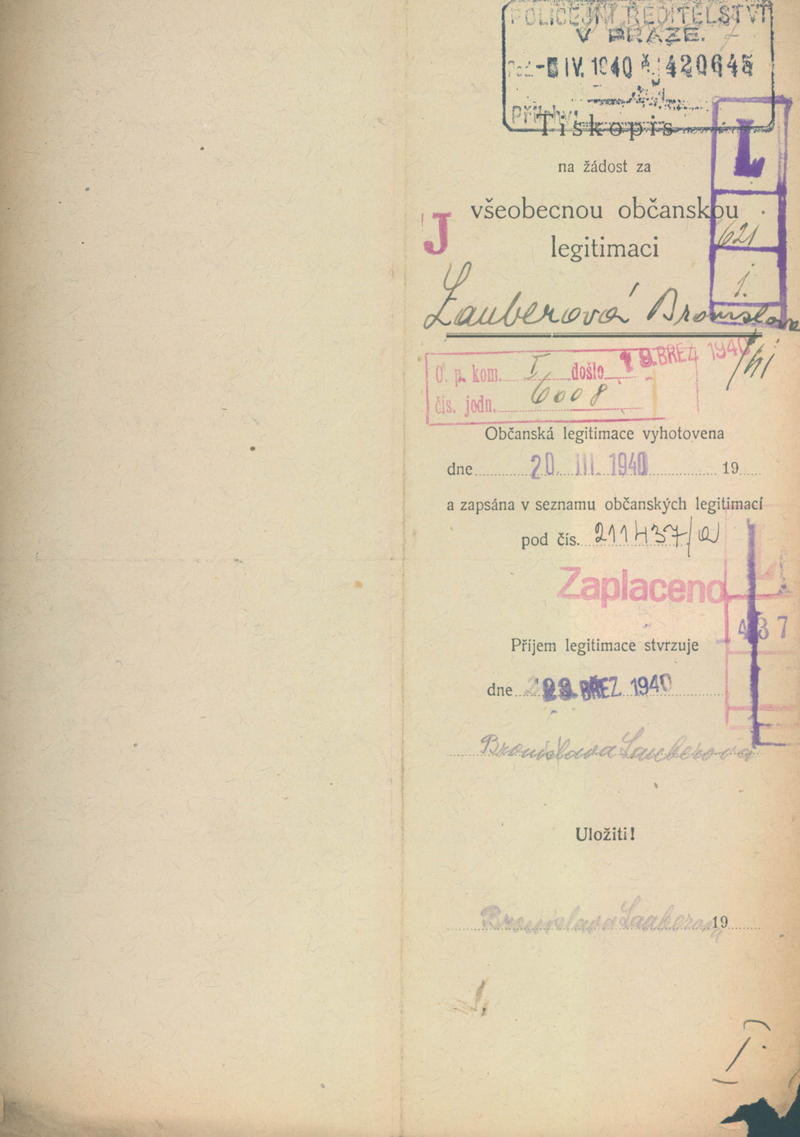 POLICEJNÍ ŘEDITELSTVÍ
V PRAZE.
-5 IV. 1940 420645
Přílohy:
Tiskopis
na žádost za
všeobecnou občanskou
legitimaci
J
L
621
1.
Lauberová Bronislava
O. p. kom. I došlo 19. BŘEZ 1940
čís. jedn. 6008
Občanská legitimace vyhotovena
dne 20. III. 1940 19
a zapsána v seznamu občanských legitimací
pod čís. 211437/
Zaplaceno
437
Příjem legitimace stvrzuje
dne BŘEZ. 1940
Bronislava Lauberová
Uložiti!
Bronislava Lauberová 19
I.